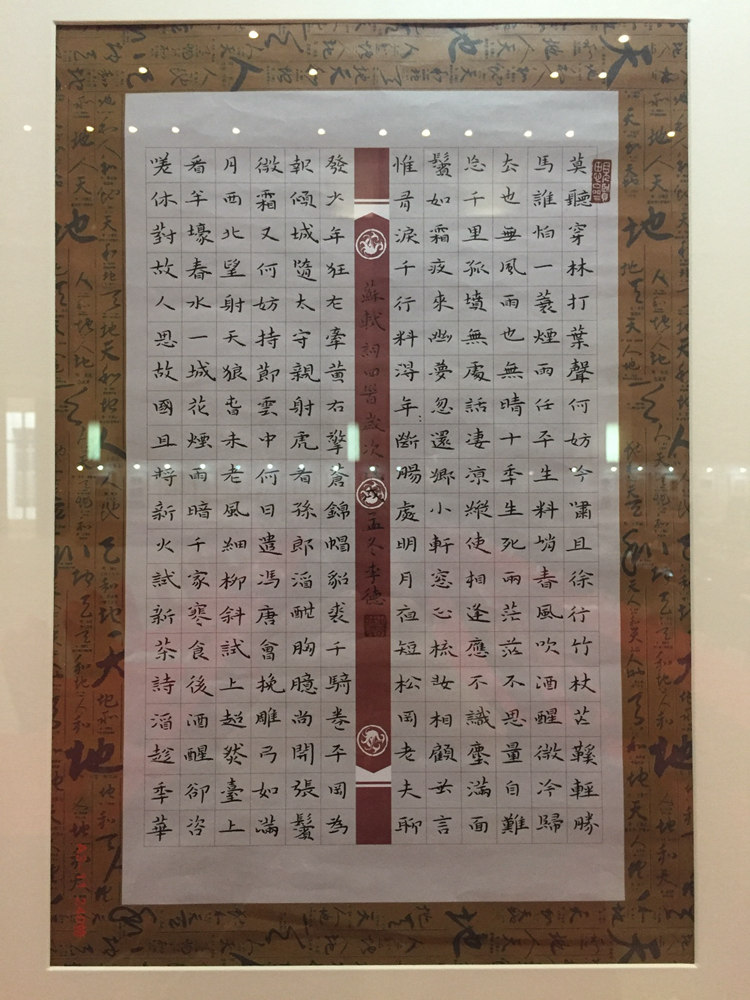 莫聽穿林打葉聲何妨吟嘯且徐行竹杖芒鞵輕勝
馬誰怕一蓑煙雨任平生料峭春風吹酒醒微冷歸
去也無風雨也無晴十年生死兩茫茫不思量自難
忘千里孤墳無處話淒涼縱使相逢應不識塵滿面
鬢如霜夜來幽夢忽還鄉小軒窗正梳妝相顧無言
惟有淚千行料得年々斷腸處明月夜短松岡老夫聊
蘇軾詞四首歲次孟冬李德
發少年狂左牽黃右擎蒼錦帽貂裘千騎卷平岡為
報傾城隨太守親射虎看孫郎酒酣胸膽尚開張鬢
微霜又何妨持節雲中何日遣馮唐會挽雕弓如滿
月西北望射天狼春未老風細柳斜試上超然臺上
看半壕春水一城花煙雨暗千家寒食後酒醒卻咨
嗟休對故人思故國且將新火試新茶詩酒趁年華